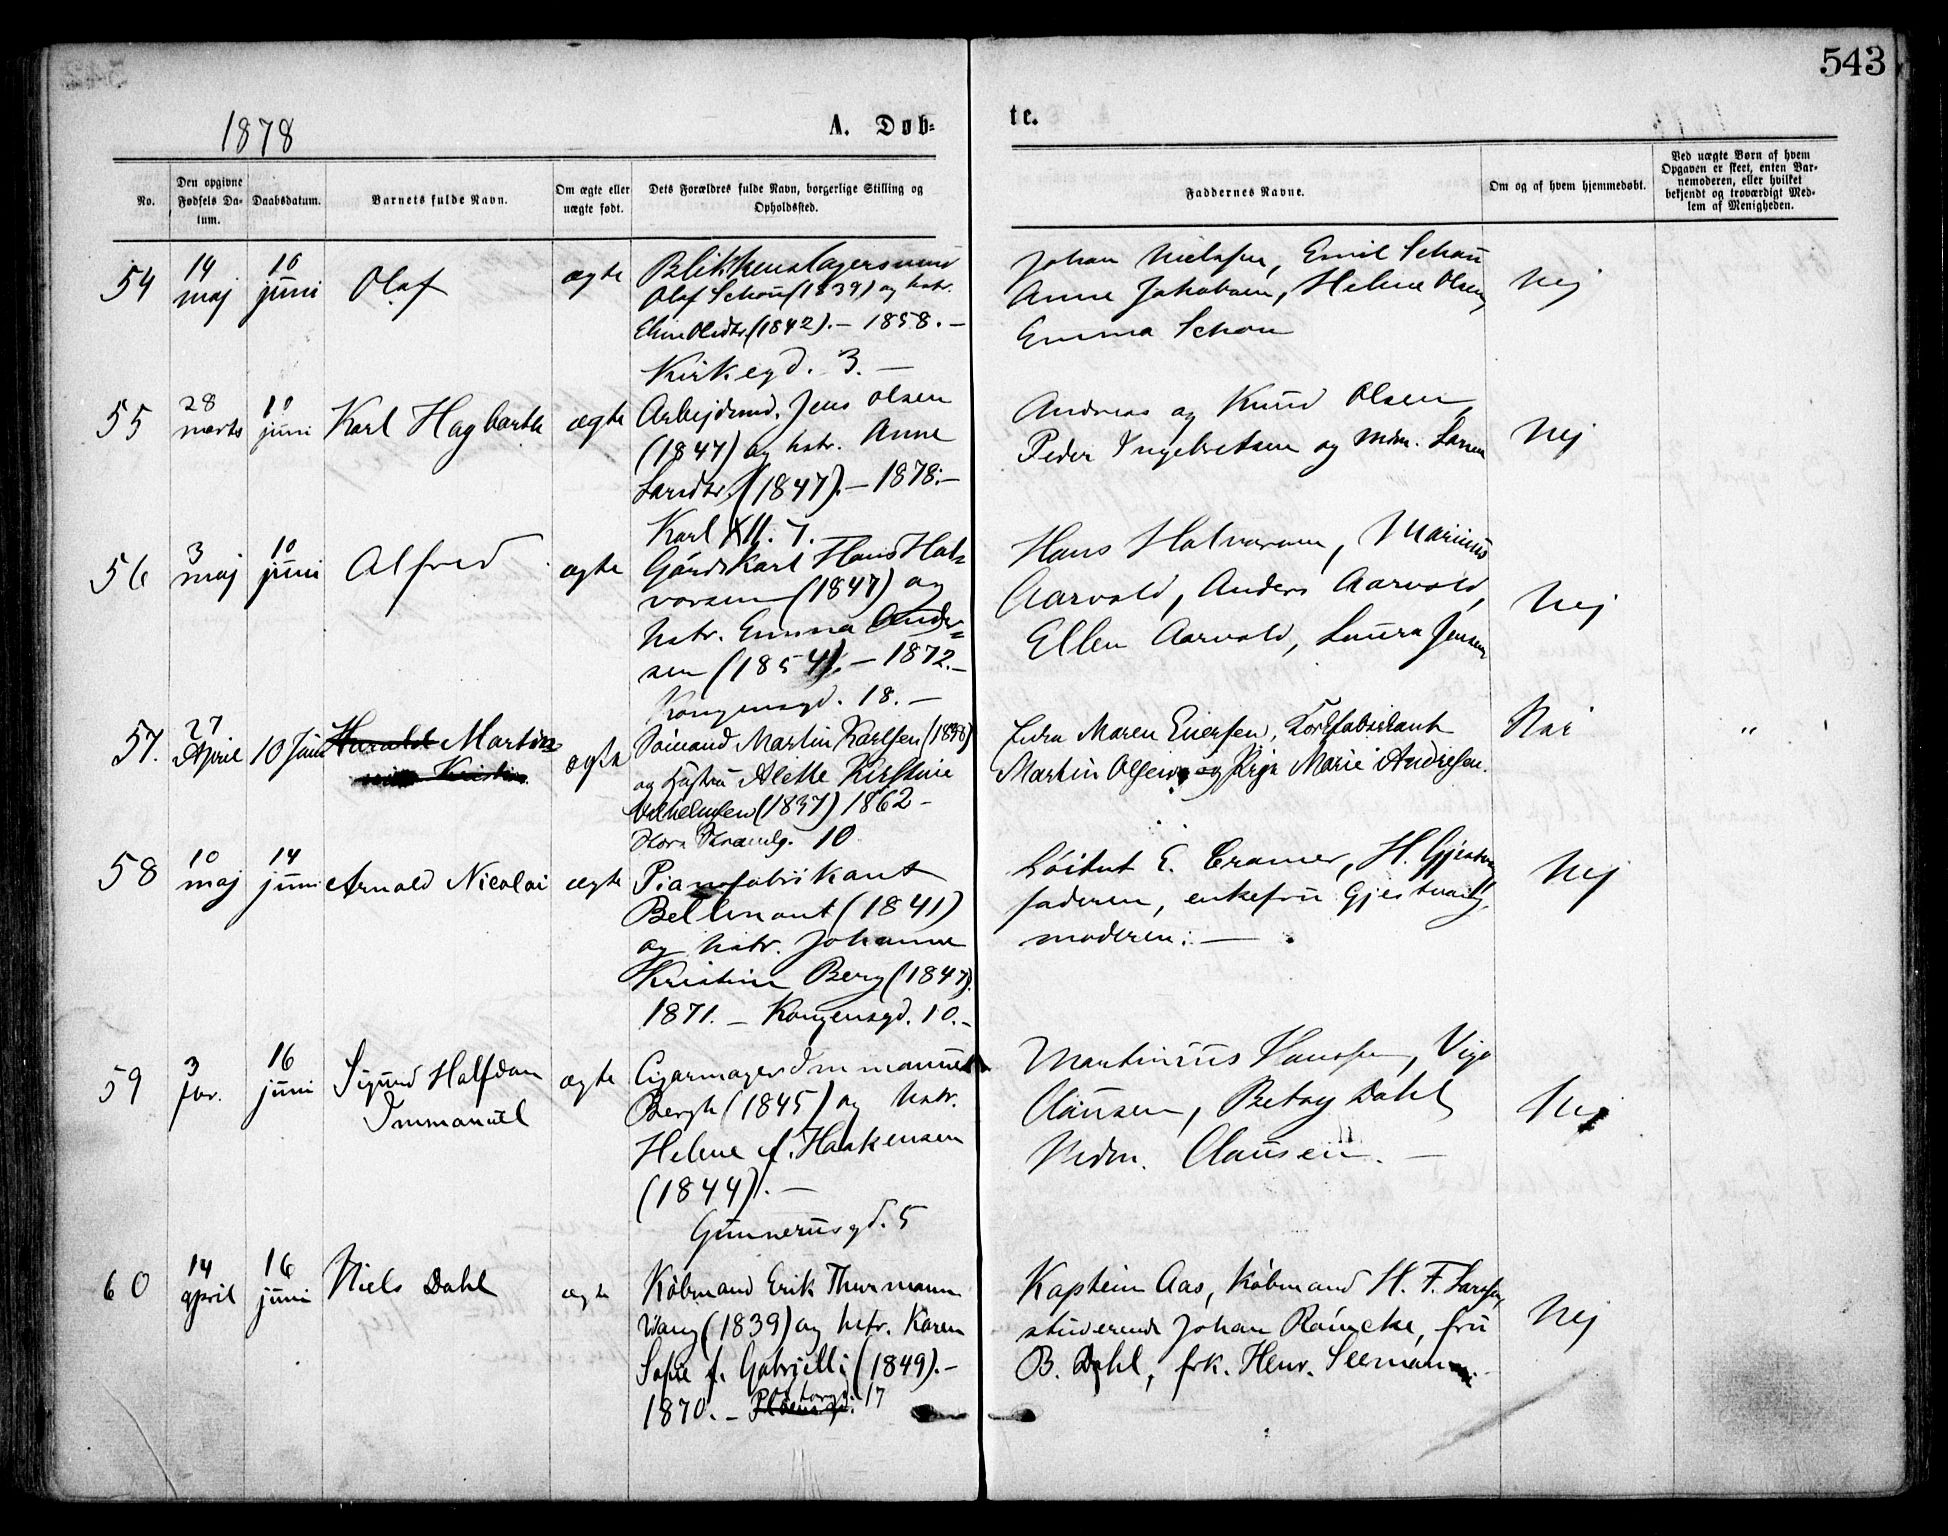 543
1878
A. Døb-
te.
No.
Den opgivne Fødsels Da-tum.
Daabsdatum.
Barnets fulde Navn.
Om ægte eller uægte født.
Dets Forældres fulde Navn, borgerlige Stilling og Opholdssted.
Faddernes Navne.
Om og af hvem hjemmedøbt.
Ved uægte Børn af hvem Opgaven er skeet, enten Bar-nemoderen, eller hvilket bekjendt og troværdigt Med-lem af Menigheden.
54
14 maj
10 juni
Olaf
ægte
Blikkenslagersvend
Olaf Schou (1839) og hstr.
(1842). – 1858. –
Kirkegd. 3. –
Johan Nielssen, Emil Schou
Anne Jakobsen, Helene Olsen,
Emma Schou
Nej
55
28 marts
10 juni
Karl Hagbarth
ægte
Arbejdsmd. Jens Olsen
(1847) og hstr. Anne
Larsdtr. (1847). – 1878. –
Karl XII. 7.
Andreas og Knud Olsen,
Peder Ingebretsen og mdm. Larsen
Nej
56
3 maj
10 juni
Alfred
ægte
Gårdskarl Hans Hal-
vorsen (1847) og
hstr. Emma Ander-
sen (1854). – 1872. –
Kongensgd. 18. –
Hans Halvorsen, Marinius
Aarvold, Anders Aarvold,
Ellen Aarvold, Laura Jensen
Nej
57.
27 April
10 Juni
Harald Martin
Kristian
ægte
Sømand Martin Karlsen (1838)
og Hustru Alette Kirstine
Vilhelmsen (1837) 1862 –
Store Strandg. 10
Maren Eversen, Korkfabrikant
Martin Olsen og Pige Marie Andresen.
Nei
"
58
10 maj
14 juni
Arnold Nicolai
ægte
Pianofabrikant
Bellmont (1841)
og hstr. Johanne
Kristine Berg (1847).
1871. – Kongensgd. 10. –
Löitnt E. Cramer, H.
faderen, enkefru
moderen: –
Nej
59
3 jar.
16 juni
Sigurd Halfdan
Immanuel
ægte
Cigarmager Immanuel
Bergh (1845) og hstr.
Helene f. Haakensen
(1844). –
Gunnerusgd. 5
Martinius Hanssen, Vigo
Clausen, Betsy Dahl
Mdm. Clausen. –
Nej
60
14 april
16 juni
Niels Dahl
ægte
Købmand Erik Thurmann
Wang (1839) og hstr. Karen
Sofie f. Gabrielli (1849). –
1870. – torg. 17
Kaptein Aas, købmand H. F. Larsen,
studerende Johan Råncke, fru
B. Dahl, frk. Henr. Seemann. –
Nej